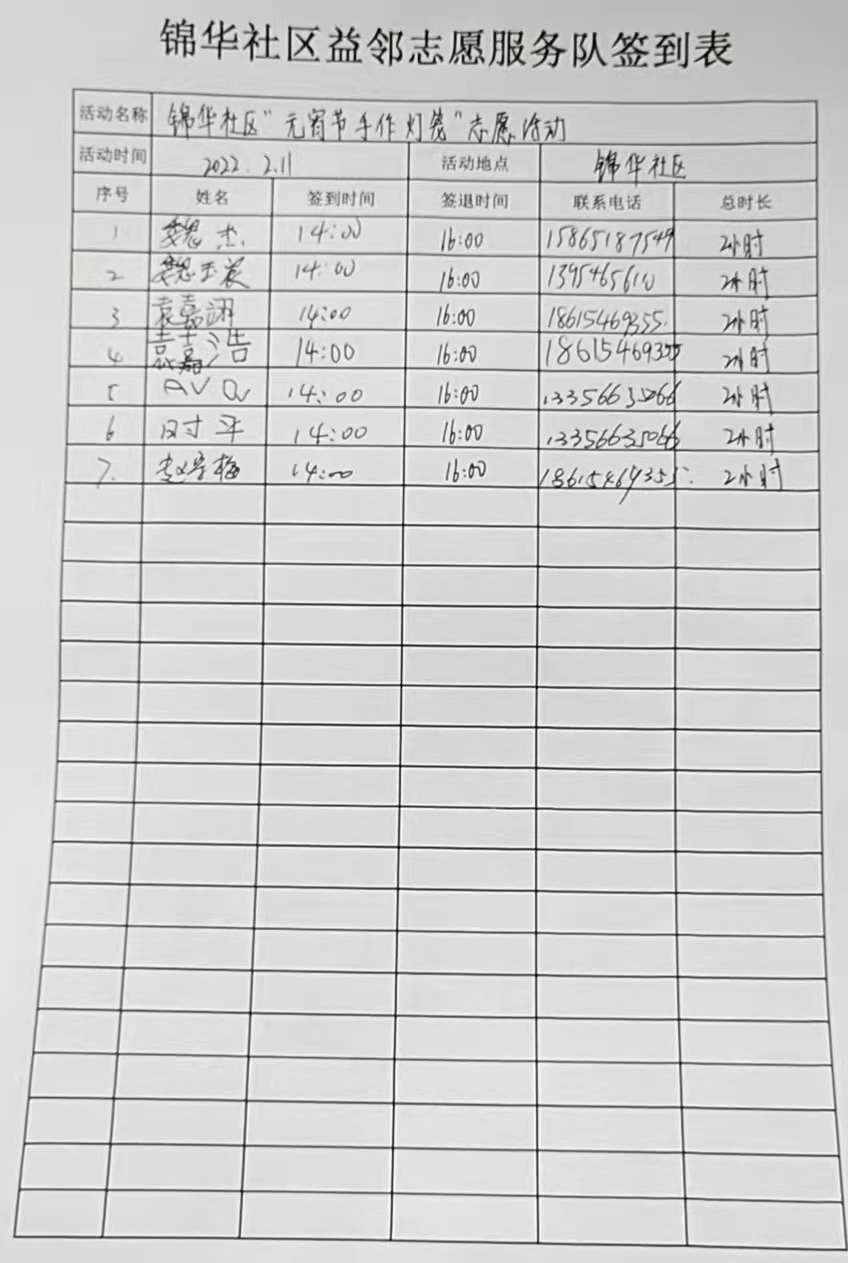 锦华社区益邻志愿服务队签到表
活动名称 锦华社区"元宵节手作灯笼"志愿活动
活动时间 2022.2.11 活动地点 锦华社区
序号 姓名 签到时间 签退时间 联系电话 总时长
1 魏杰 14:00 16:00 15865187549 2小时
2 魏 14:00 16:00 2小时
3 袁嘉翊 14:00 16:00 18615469355 2小时
4 袁嘉浩 14:00 16:00 18615469355 2小时
5 14:00 16:00 13356635066 2小时
6 时平 14:00 16:00 13356635066 2小时
7. 14:00 16:00 2小时